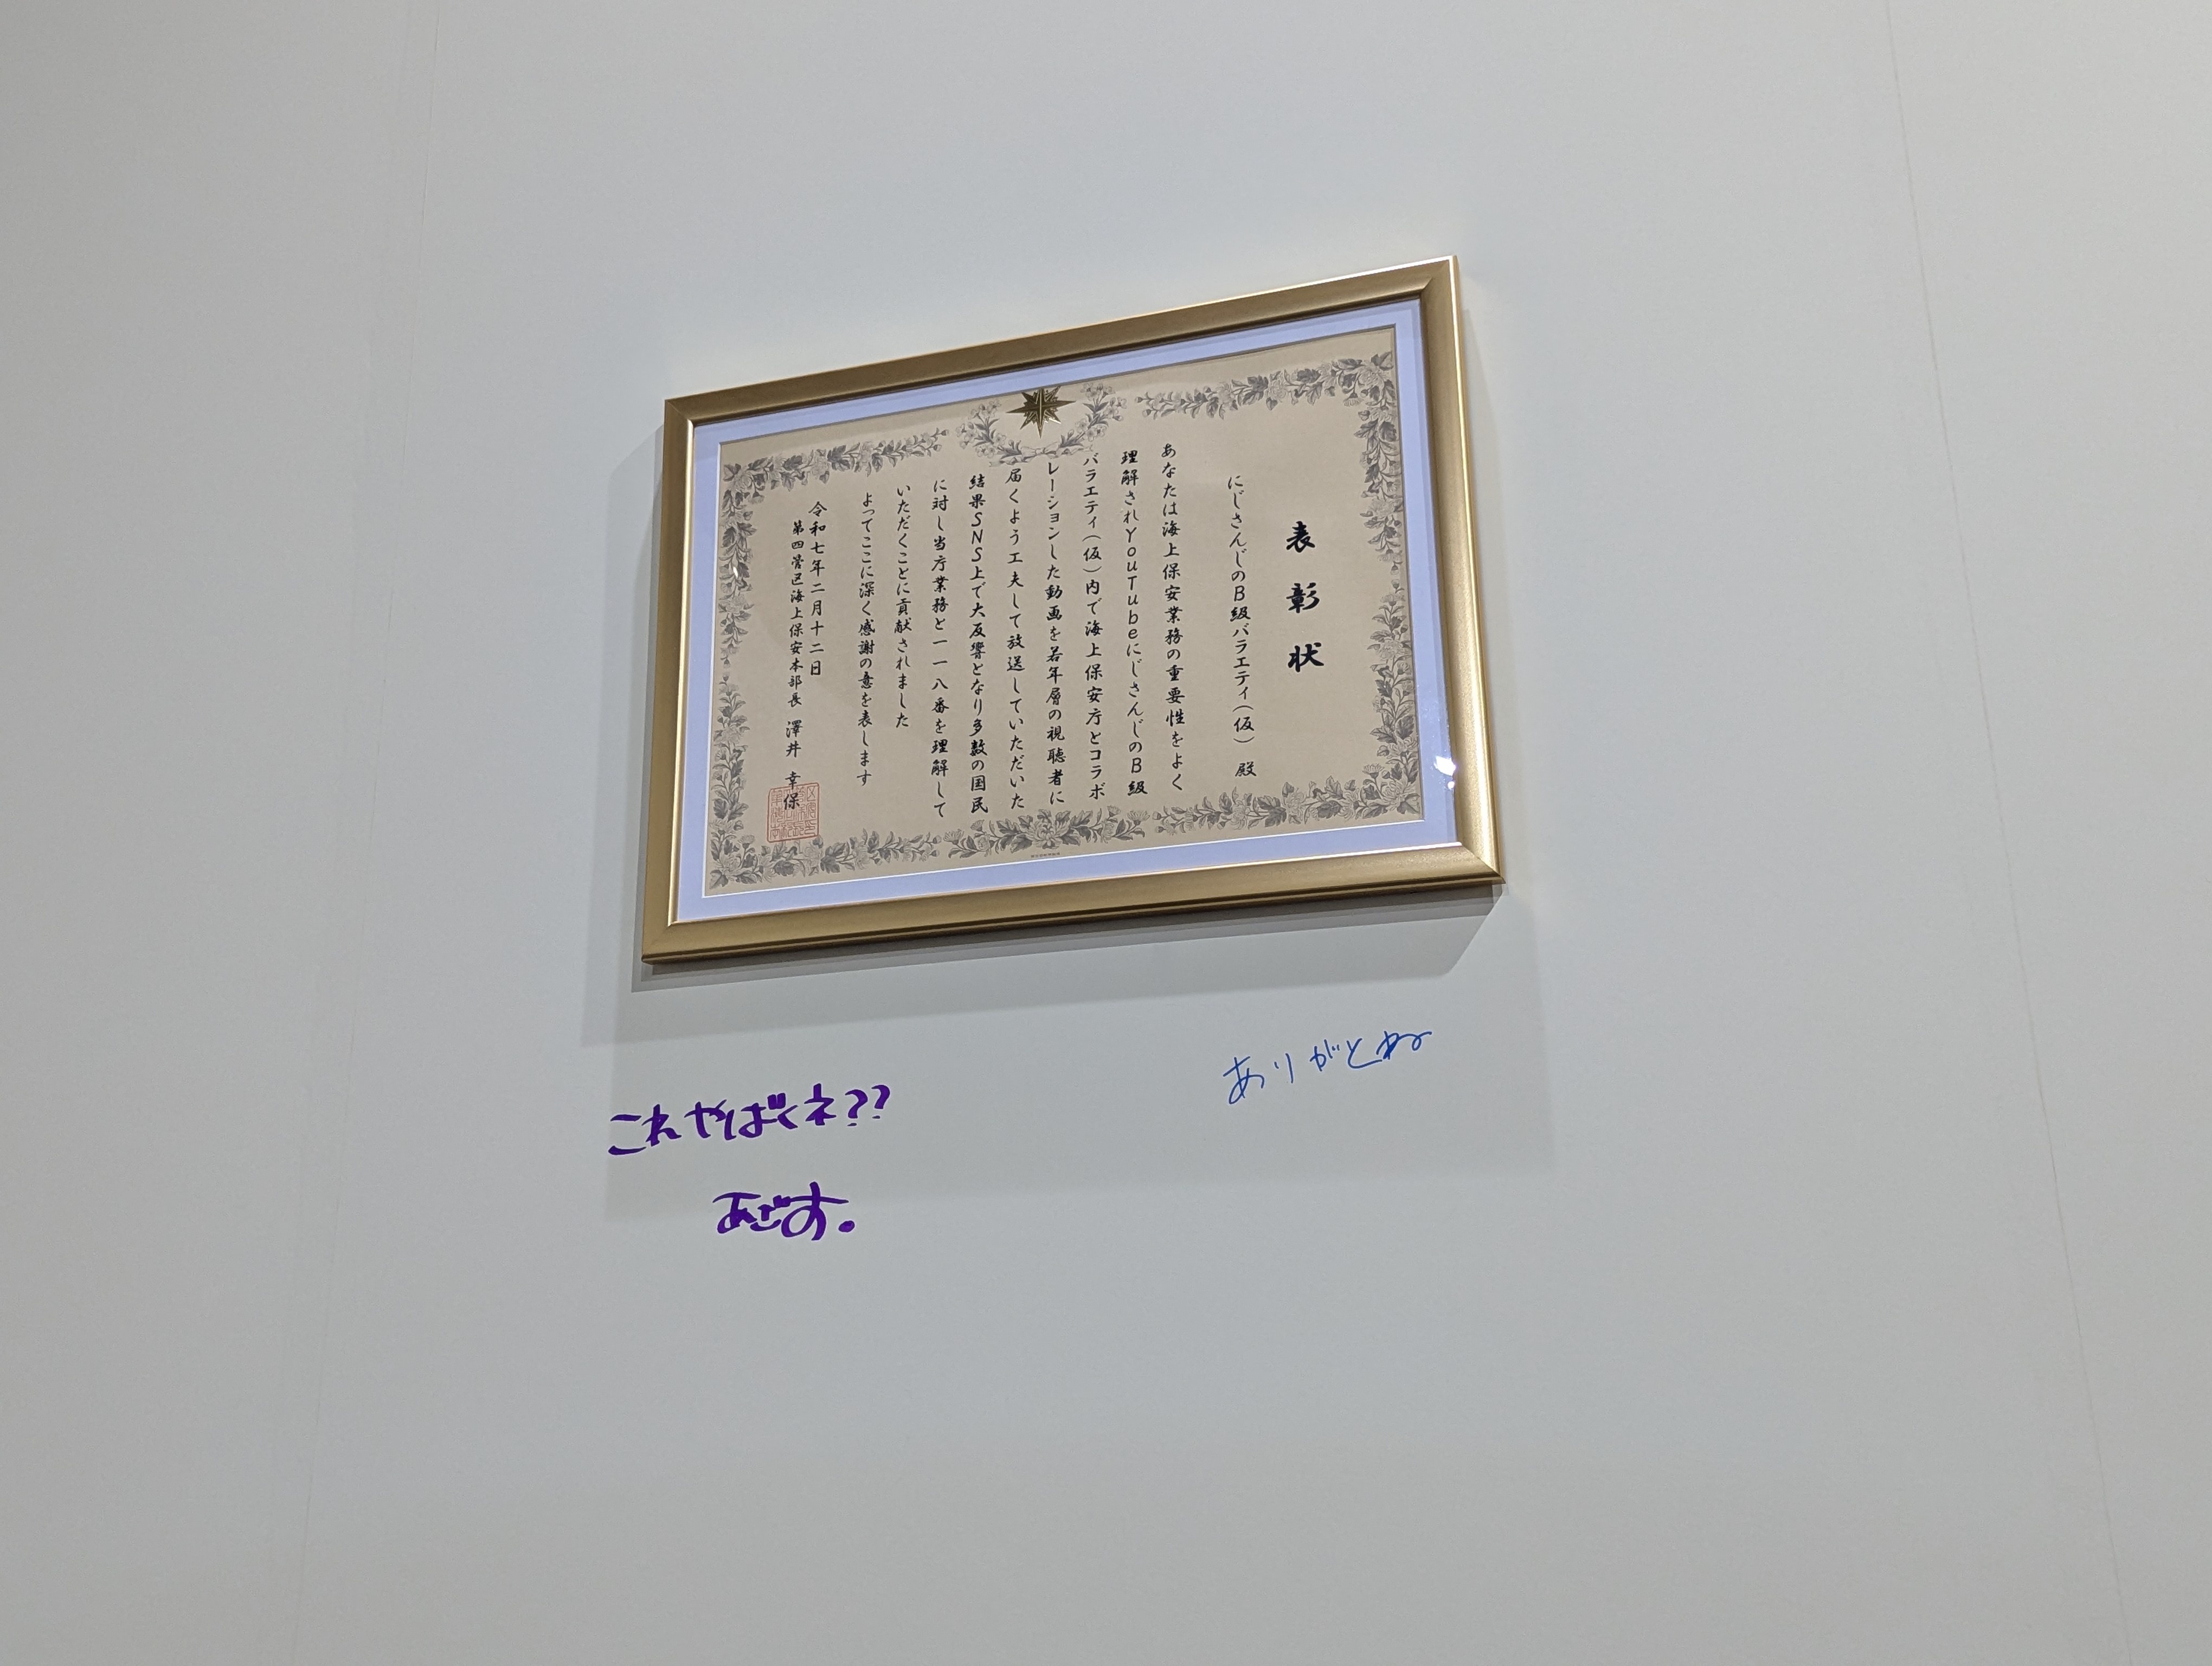 表彰状
にじさんじのB級バラエティ(仮) 殿
あなたは海上保安業務の重要性をよく
理解されYouTubeにじさんじのB級
バラエティ(仮)内で海上保安庁とコラボ
レーションした動画を若年層の視聴者に
届くよう工夫して放送していただいた
結果SNS上で大反響となり多数の国民
に対し当庁業務と一一八番を理解して
いただくことに貢献されました
よってここに深く感謝の意を表します
令和七年二月十二日
第四管区海上保安本部長 澤井 幸保
ありがとね
これやばくネ??
あざす。